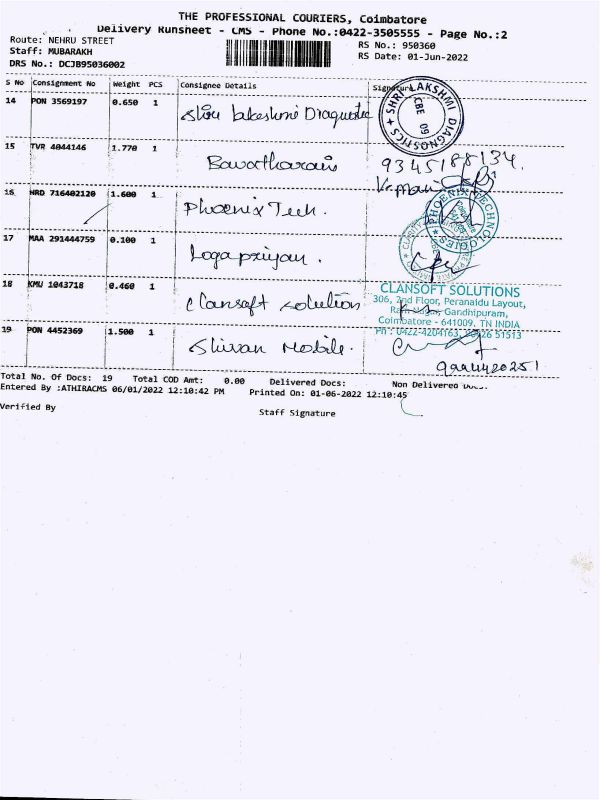 THE PROFESSIONAL COURIERS, Coimbatore
Delivery Runsheet - CMS - Phone No.:0422-3505555 - Page No.:2
Route: NEHRU STREET
RS No.: 950360
Staff: MUBARAKH
RS Date: 01-Jun-2022
DRS No.: DCJB95036002
S No Consignment No Weight PCS Consignee Details Signature
SHRI LAKSHMI DIAGNOSTICS
CBE 09
14 PON 3569197 0.650 1 Shri Lakeshmi
15 TVR 4044146 1.770 1 Bavatharani
9345188134.
16 NRD 716402120 1.600 1 Phoenix Tech.
PHOENIX TECHNOLOGIES
17 MAA 291444759 0.100 1 Logapriyan.
18 KMU 1043718 0.460 1 Clansoft solution
CLANSOFT SOLUTIONS
306, 2nd Floor, Peranaidu Layout,
Ram Nagar, Gandhipuram,
Coimbatore - 641009, TN INDIA
Ph : 0422-4204163, 51513
19 PON 4452369 1.500 1 Shivan Mobile.
Total No. Of Docs: 19 Total COD Amt: 0.00 Delivered Docs: Non Delivered
Entered By :ATHIRACMS 06/01/2022 12:10:42 PM Printed On: 01-06-2022 12:10:45
Verified By
Staff Signature